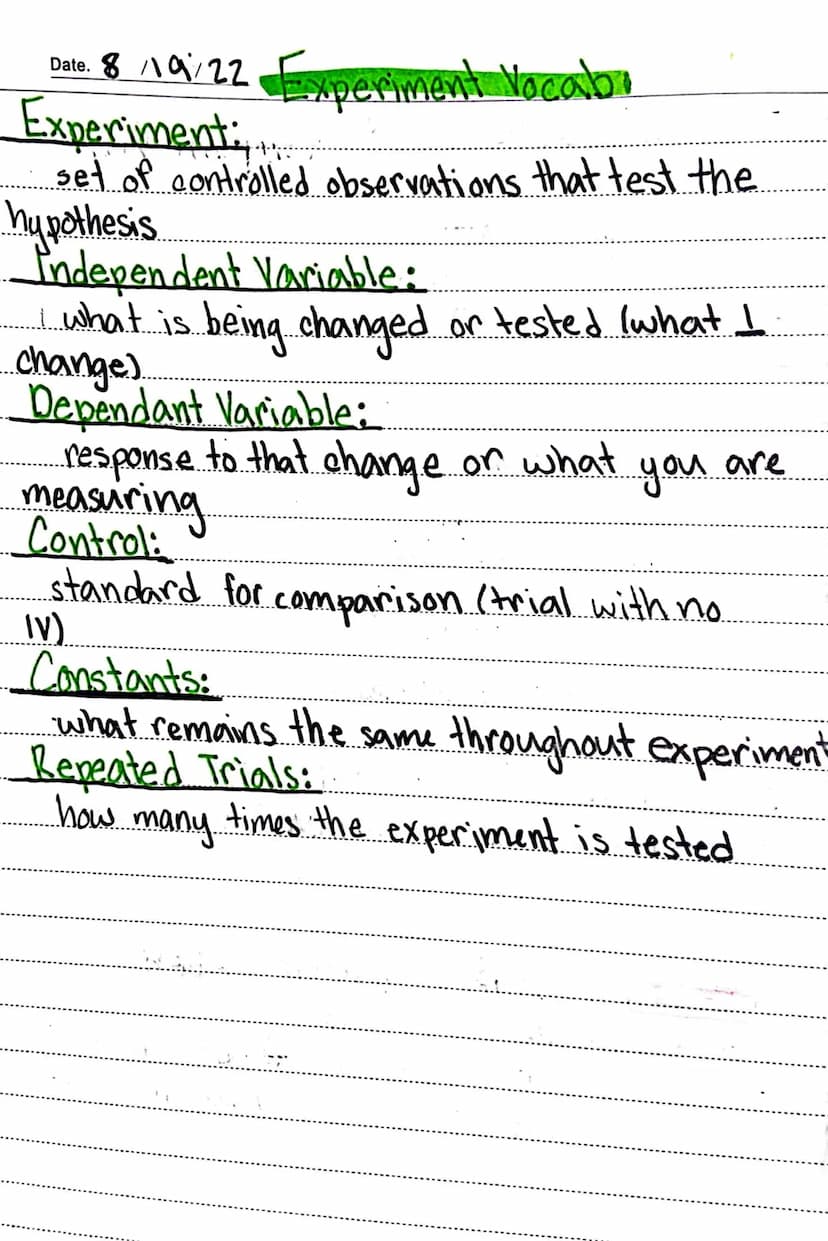 Date. 8/19/22 Experiment Vocab
Experiment:
set of controlled observations that test the
hypothesis
Independent Variable:
what is being changed or tested (what I
change)
Dependant Variable:
response to that change or what you are
measuring
Control:
standard for comparison (trial with no
IV)
Constants:
what remains the same throughout experiment
Repeated Trials:
how many times the experiment is tested